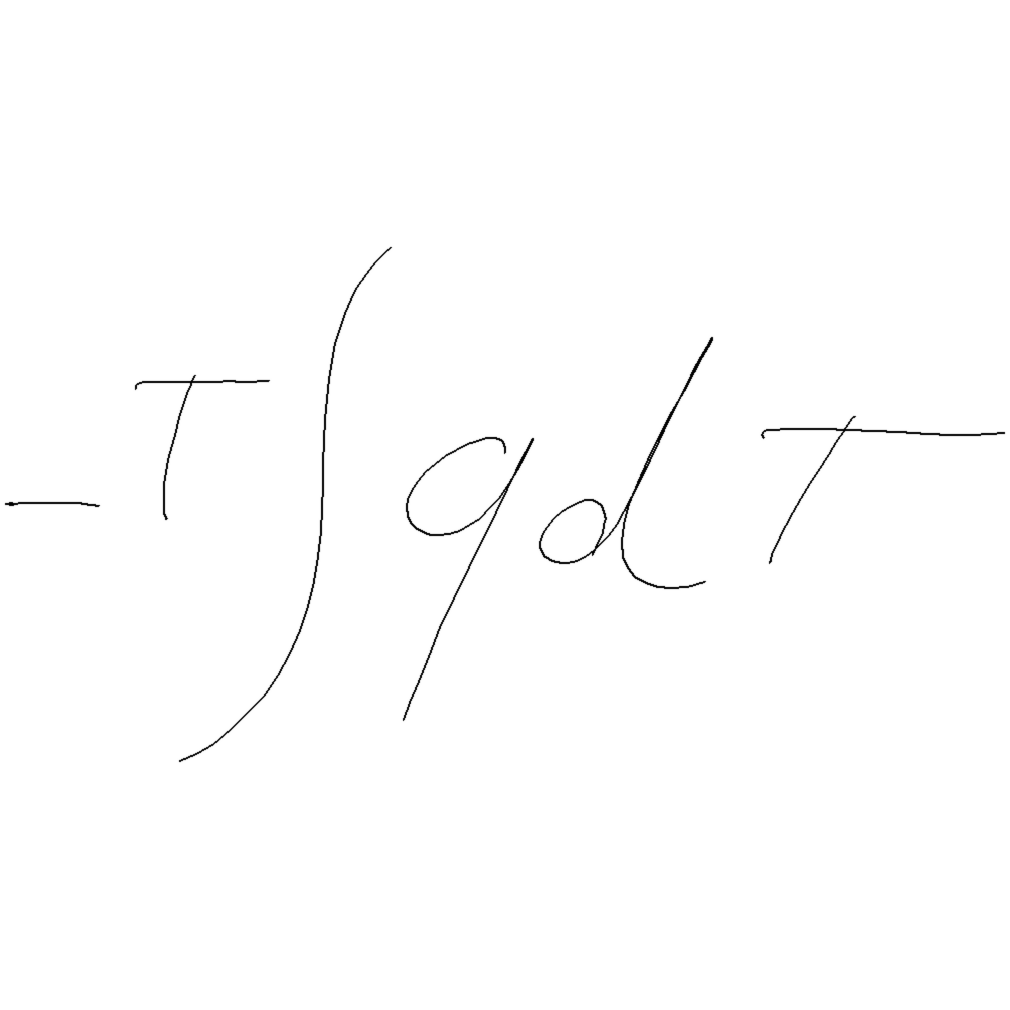 -T∫qdT